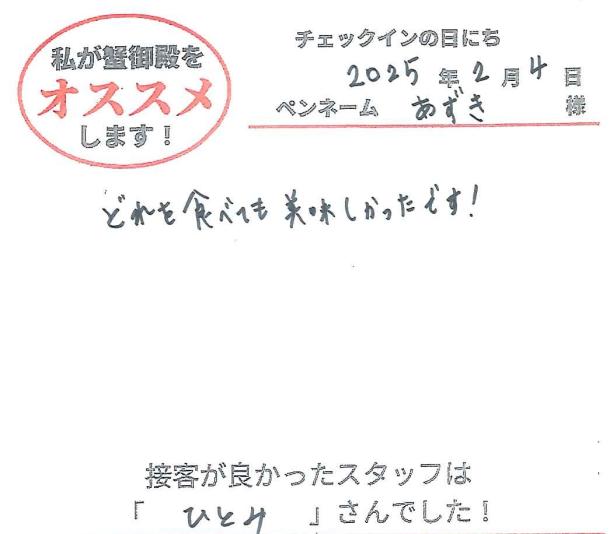 私が蟹御殿を
オススメ
します！
チェックインの日にち
2025 年 2 月 4 日
ペンネーム あずき 様
どれを食べても美味しかったです！
接客が良かったスタッフは
「 ひとみ 」さんでした！